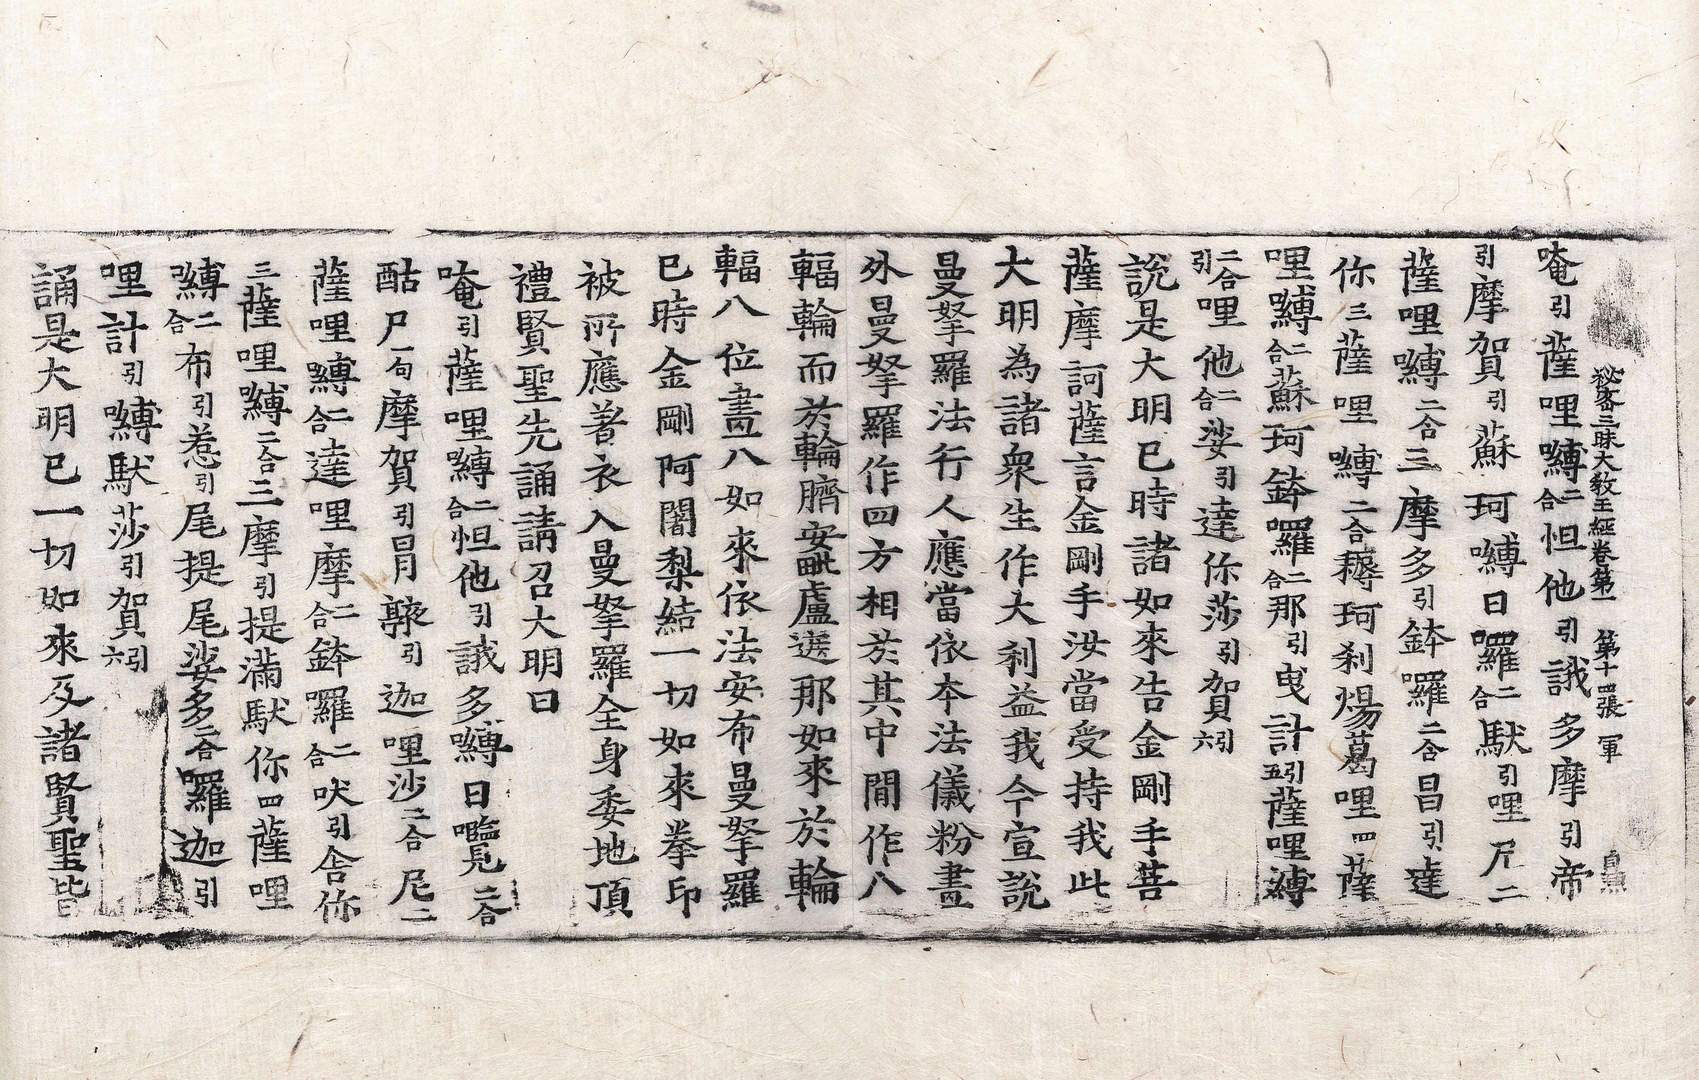 秘密三昧大教王經卷第一 第十四張 軍
唵引薩哩嚩二合怛他引誐多摩引帝
引摩賀引蘇珂嚩日囉二合馱引哩尼二
薩哩嚩二合三摩多引鉢囉二合昌引達
你三薩哩嚩二合耨珂剎煬葛哩四薩
哩嚩二合蘇珂鉢囉二合那引曳計引五薩哩嚩
二合引哩他二合娑引達你莎引賀引六
說是大明已時諸如來告金剛手菩
薩摩訶薩言金剛手汝當受持我此
大明為諸衆生作大利益我今宣說
曼拏羅法行人應當依本法儀粉畫
外曼拏羅作四方相於其中間作八
輻輪而於輪臍安毗盧遮那如來於輪
輻八位畫八如來依法安布曼拏羅
已時金剛阿闍梨結一切如來拳印
被所應著衣入曼拏羅全身委地頂
禮賢聖先誦請召大明曰
唵引薩哩嚩二合怛他引誐多嚩日囕二合
酤尸一句摩賀引冐引迦哩沙二合尼二
薩哩嚩二合達哩摩二合鉢囉二合吠引舍你
三薩哩嚩二合三摩引提滿馱你四薩哩
嚩二合布引惹引尾提尾娑多二合囉迦引
哩計引嚩馱莎引賀引六
誦是大明已一切如來及諸賢聖皆